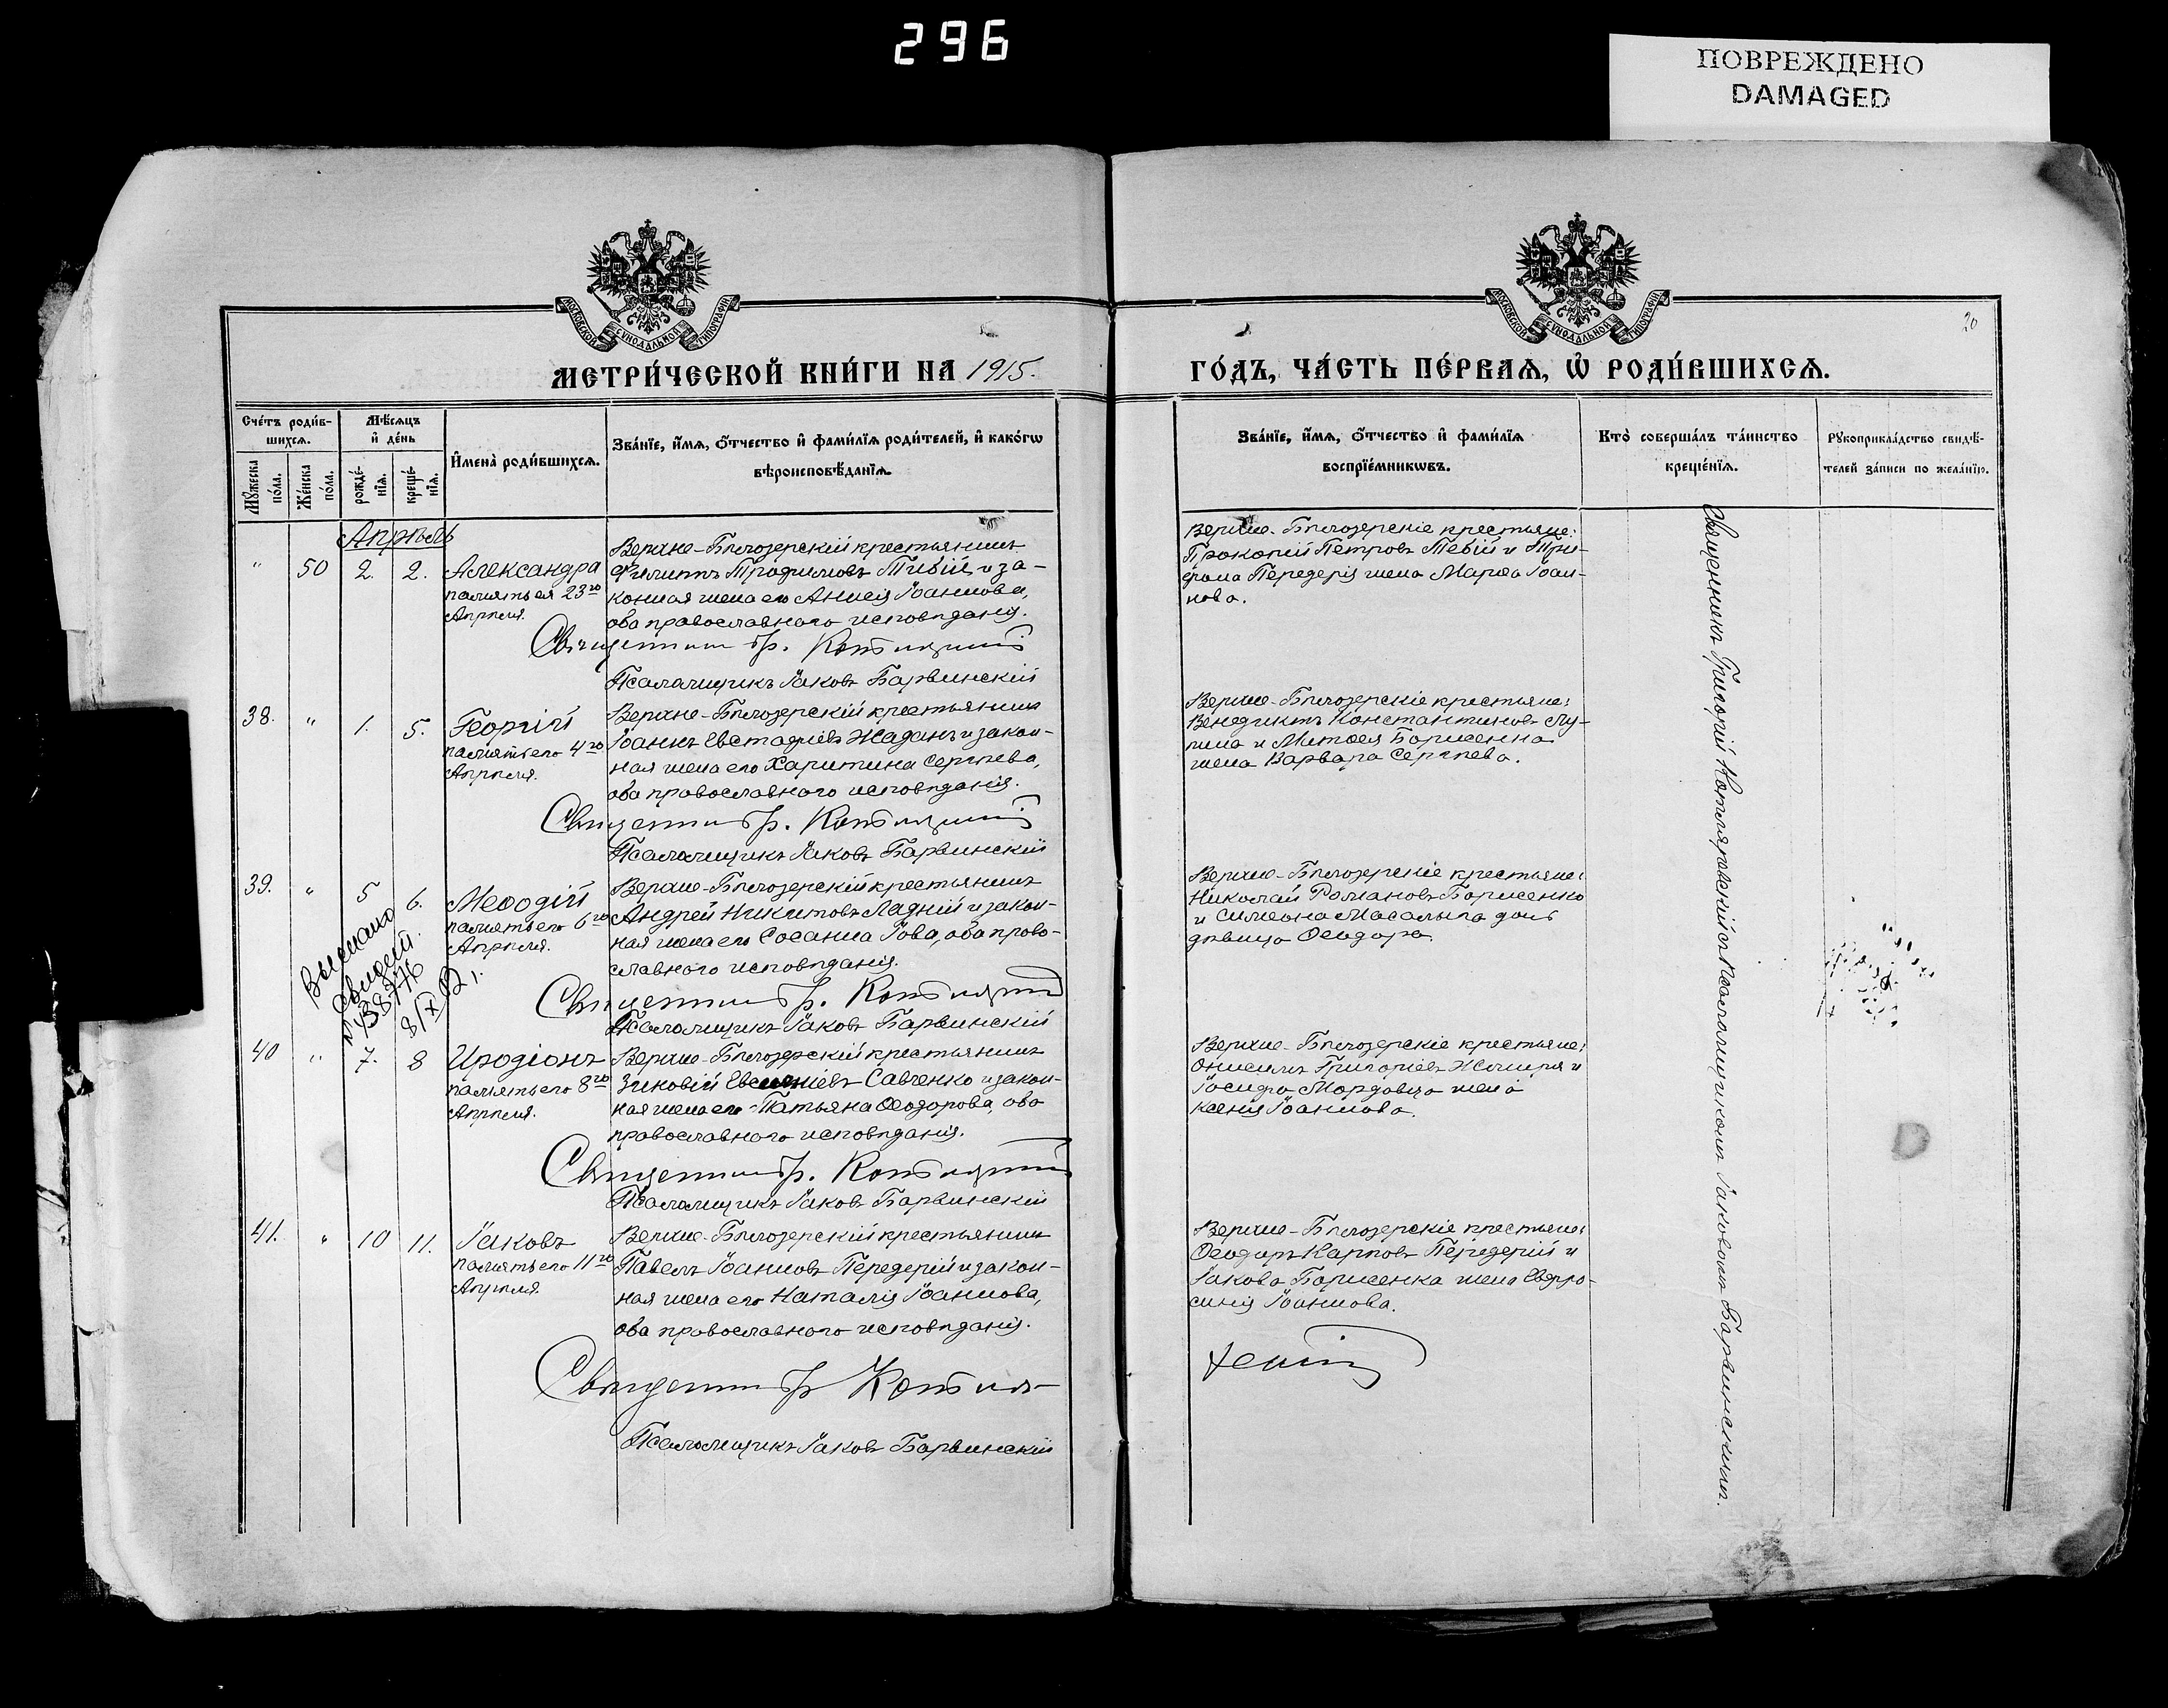 296
ПОВРЕЖДЕНО
DAMAGED
МОСКОВСКОЙ СѴНОДАЛЬНОЙ ТИПОГРАФІИ
МОСКОВСКОЙ СѴНОДАЛЬНОЙ ТИПОГРАФІИ
20
МЕТРИ́ЧЕСКОЙ КНИ́ГИ НА 1915.
ГО́ДЪ, ЧА́СТЬ ПЕ́РВАѦ, Ѡ҆ РОДИ́ВШИХСѦ.
Сче́тъ роди́в-
шихсѧ.
Мѣ́сѧцъ
и҆ де́нь
Мꙋ́жеска
по́ла.
Же́нска
по́ла.
рожде́-
нїѧ.
креще́-
нїѧ.
И҆мена̀ роди́вшихсѧ.
Зва́нїе, и҆́мѧ, ѻ҆́тчество и҆ фами́лїѧ роди́телей, и҆ како́гѡ
вѣроисповѣ́данїѧ.
Зва́нїе, и҆́мѧ, ѻ҆́тчество и҆ фами́лїѧ
воспрїе́мникѡвъ.
Кто̀ соверша́лъ та́инство
креще́нїѧ.
Рꙋкоприкла́дство свидѣ́-
телей за́писи по жела́нїю.
Апрѣль
" 50 2. 2. Александра
память ея 23го
Апрѣля.
Верхне-Бѣлозерскій крестьянинъ
Филиппъ Трофимовъ и за-
конная жена его Анисія Іоаннова,
оба православнаго исповѣданія.
Священникъ Гр.
Псаломщикъ Іаковъ Барвинскій
Верхне-Бѣлозерскіе крестьяне:
Прокопій Петровъ и Три-
фона Передерія жена Марѳа Іоан-
нова.
38. " 1. 5. Георгій
память его 4го
Апрѣля.
Верхне-Бѣлозерскій крестьянинъ
Іоаннъ Евстафіевъ Жаданъ и закон-
ная жена его Харитина Сергѣева,
оба православнаго исповѣданія.
Священникъ Гр.
Псаломщикъ Іаковъ Барвинскій
Верхне-Бѣлозерскіе крестьяне:
Венедиктъ Константиновъ Лу-
пина и Борисенка
жена Варвара Сергѣева.
39. " 5 6. Меѳодій
память его 6го
Апрѣля.
Верхне-Бѣлозерскій крестьянинъ
Андрей Никитовъ Ладній и закон-
ная жена его Сосанна Іова, оба право-
славнаго исповѣданія.
Священникъ Гр.
Псаломщикъ Іаковъ Барвинскій
Верхне-Бѣлозерскіе крестьяне:
Николай Романовъ Борисенко
и Симеона Масалыпа дочь
дѣвица Ѳеодора.
40 " 7. 8 Иродіонъ
память его 8го
Апрѣля.
Верхне-Бѣлозерскій крестьянинъ
Зиновій Савченко и закон-
ная жена его Татьяна Ѳеодорова, оба
православнаго исповѣданія.
Священникъ Гр.
Псаломщикъ Іаковъ Барвинскій
Верхне-Бѣлозерскіе крестьяне:
Онисимъ Григоріевъ и
Іосифа Мордовца жена
Ксенія Іоаннова.
41. " 10 11. Іаковъ
память его 11го
Апрѣля.
Верхне-Бѣлозерскій крестьянинъ
Павелъ Іоанновъ Передерій и закон-
ная жена его Наталія Іоаннова,
оба православнаго исповѣданія.
Священникъ Гр
Псаломщикъ Іаковъ Барвинскій
Верхне-Бѣлозерскіе крестьяне:
Ѳеодоръ Карповъ Передерій и
Іакова Борисенка жена Евфро-
синія Іоаннова.
Священникъ Григорій съ псаломщикомъ Іаковомъ Барвинскимъ.